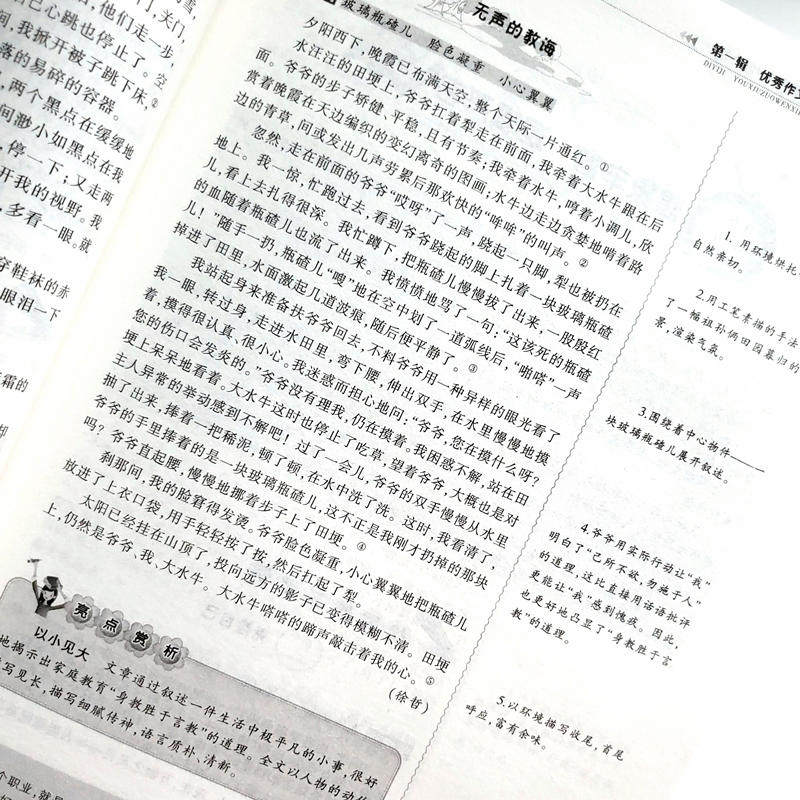 门，关门，
他们走一步，
己心跳也停止了。
，我掀开被子跳下床，
落的易碎的容器。
，两个黑点在缓缓地
间渺小如黑点在我
，停一下；又走两
开我的视野。我
，多看一眼。就
穿鞋袜的赤
眼泪一下
霜的
第一辑 优秀作文
DIYIJI YOUXIUZUOWENXI
无声的教诲
玻璃瓶碴儿 脸色凝重 小心翼翼
夕阳西下，晚霞已布满天空，整个天际一片通红。①
水汪汪的田埂上，爷爷扛着犁走在前面，我牵着大水牛跟在后
面。爷爷的步子矫健、平稳，且有节奏；我牵着水牛，哼着小调儿，欣
赏着晚霞在天边编织的变幻离奇的图画；水牛边走边贪婪地啃着路
边的青草，间或发出几声劳累后那欢快的“哞哞”的叫声。②
忽然，走在前面的爷爷“哎呀”了一声，跷起一只脚，犁也被扔在
地上。我一惊，忙跑过去，看到爷爷跷起的脚上扎着一块玻璃瓶碴
儿，看上去扎得很深。我忙蹲下，把瓶碴儿慢慢拔了出来，一股殷红
的血随着瓶碴儿也流了出来。我愤愤地骂了一句：“这该死的瓶碴
儿！”随手一扔，瓶碴儿“嗖”地在空中划了一道弧线后，“啪嗒”一声
掉进了田里，水面激起几道波痕，随后便平静了。③
我站起身来准备扶爷爷回去，不料爷爷用一种异样的眼光看了
我一眼，转过身，走进水田里，弯下腰，伸出双手，在水里慢慢地摸
着，摸得很认真、很小心。我迷惑而担心地问：“爷爷，您在摸什么呀？
您的伤口会发炎的。”爷爷没有理我，仍在摸着。我困惑不解，站在田
埂上呆呆地看着。大水牛这时也停止了吃草，望着爷爷，大概也是对
主人异常的举动感到不解吧！过了一会儿，爷爷的双手慢慢从水里
抽了出来，捧着一把稀泥，顿了顿，在水中洗了洗。这时，我看清了，
爷爷的手里捧着的是一块玻璃瓶碴儿，这不正是我刚才扔掉的那块
吗？爷爷直起腰，慢慢地挪着步子上了田埂。④
刹那间，我的脸窘得发烫。爷爷脸色凝重，小心翼翼地把瓶碴儿
放进了上衣口袋，用手轻轻按了按，然后扛起了犁。
太阳已经挂在山顶了，投向远方的影子已变得模糊不清。田埂
上，仍然是爷爷、我、大水牛。大水牛嗒嗒的蹄声敲击着我的心。⑤
（徐哲）
1. 用环境烘托
自然亲切。
2.用工笔素描的手法
了一幅祖孙俩田园暮归的
景，渲染气氛。
3.围绕着中心物件——
块玻璃瓶碴儿展开叙述。
4.爷爷用实际行动让“我”
明白了“己所不欲，勿施于人”
的道理，这比直接用话语批评
更能让“我”感到愧疚。因此，
也更好地凸显了“身教胜于言
教”的道理。
5.以环境描写收尾，首尾
呼应，富有余味。
亮点赏析
以小见大 文章通过叙述一件生活中极平凡的小事，很好
地揭示出家庭教育“身教胜于言教”的道理。全文以人物的动作
写见长，描写细腻传神，语言质朴、清新。
个职业，就是